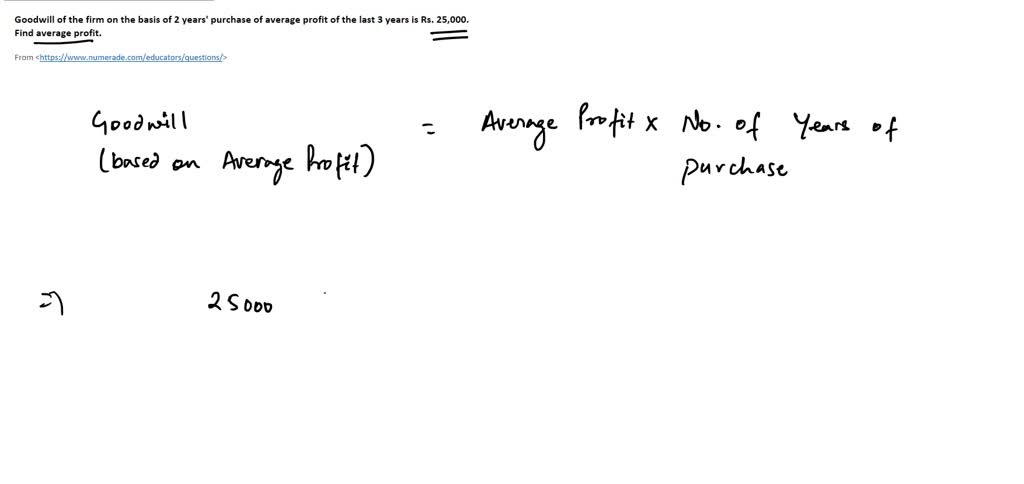 Goodwill of the firm on the basis of 2 years' purchase of average profit of the last 3 years is Rs. 25,000.
Find average profit.
From <https://www.numerade.com/educators/questions/>
Goodwill = Average Profit x No. of Years of
(based on Average Profit) purchase
=) 25000